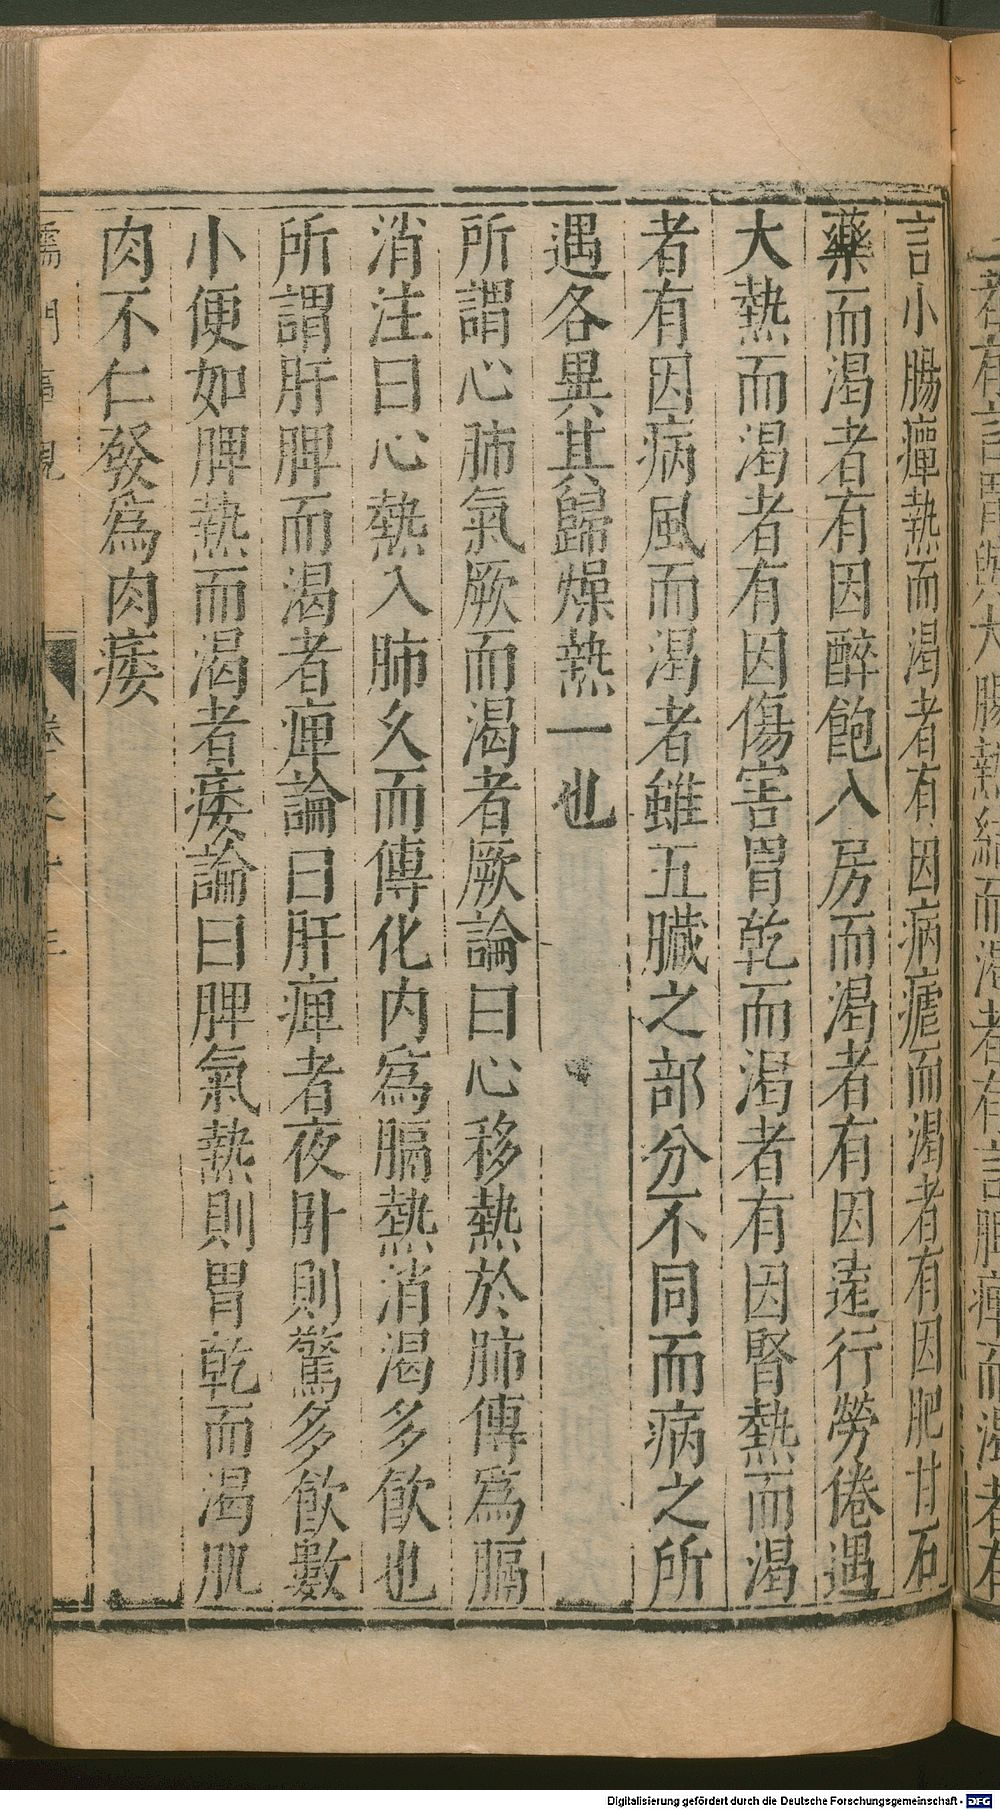 言小腸癉熱而渴者有因病瘧而渴者有因肥甘石
藥而渴者有因醉飽入房而渴者有因遠行勞倦遇
大熱而渴者有因傷害胃乾而渴者有因腎熱而渴
者有因病風而渴者雖五臟之部分不同而病之所
遇各異其歸燥熱一也
所謂心肺氣厥而渴者厥論曰心移熱於肺傳為膈
消注曰心熱入肺久而傳化內為膈熱消渴多飲也
所謂肝脾而渴者痺論曰肝痺者夜臥則驚多飲數
小便如脾熱而渴者痿論曰脾氣熱則胃乾而渴肌
肉不仁發為肉痿
儒門事親
卷之十三
Digitalisierung gefördert durch die Deutsche Forschungsgemeinschaft - DFG